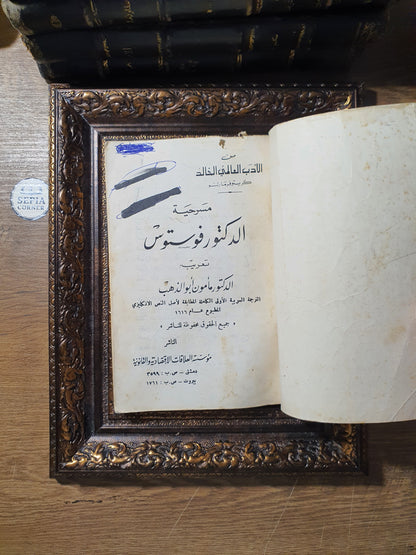 SEPIA
CORNER
من
الأدب العالمي الخالد
كريستوفر مارلو
مسرحية
الدكتور فوستوس
تعريب
الدكتور مأمون أبو الذهب
الترجمة العربية الأولى الكاملة المطابقة لأصل النص الانكليزي
المطبوع عام ١٦١٦
• جميع الحقوق محفوظة للناشر •
الناشر
مؤسسة العلاقات الاقتصادية والقانونية
دمشق - ص.ب: ٣٥٩٩
بيروت - ص.ب: ١٧٦١